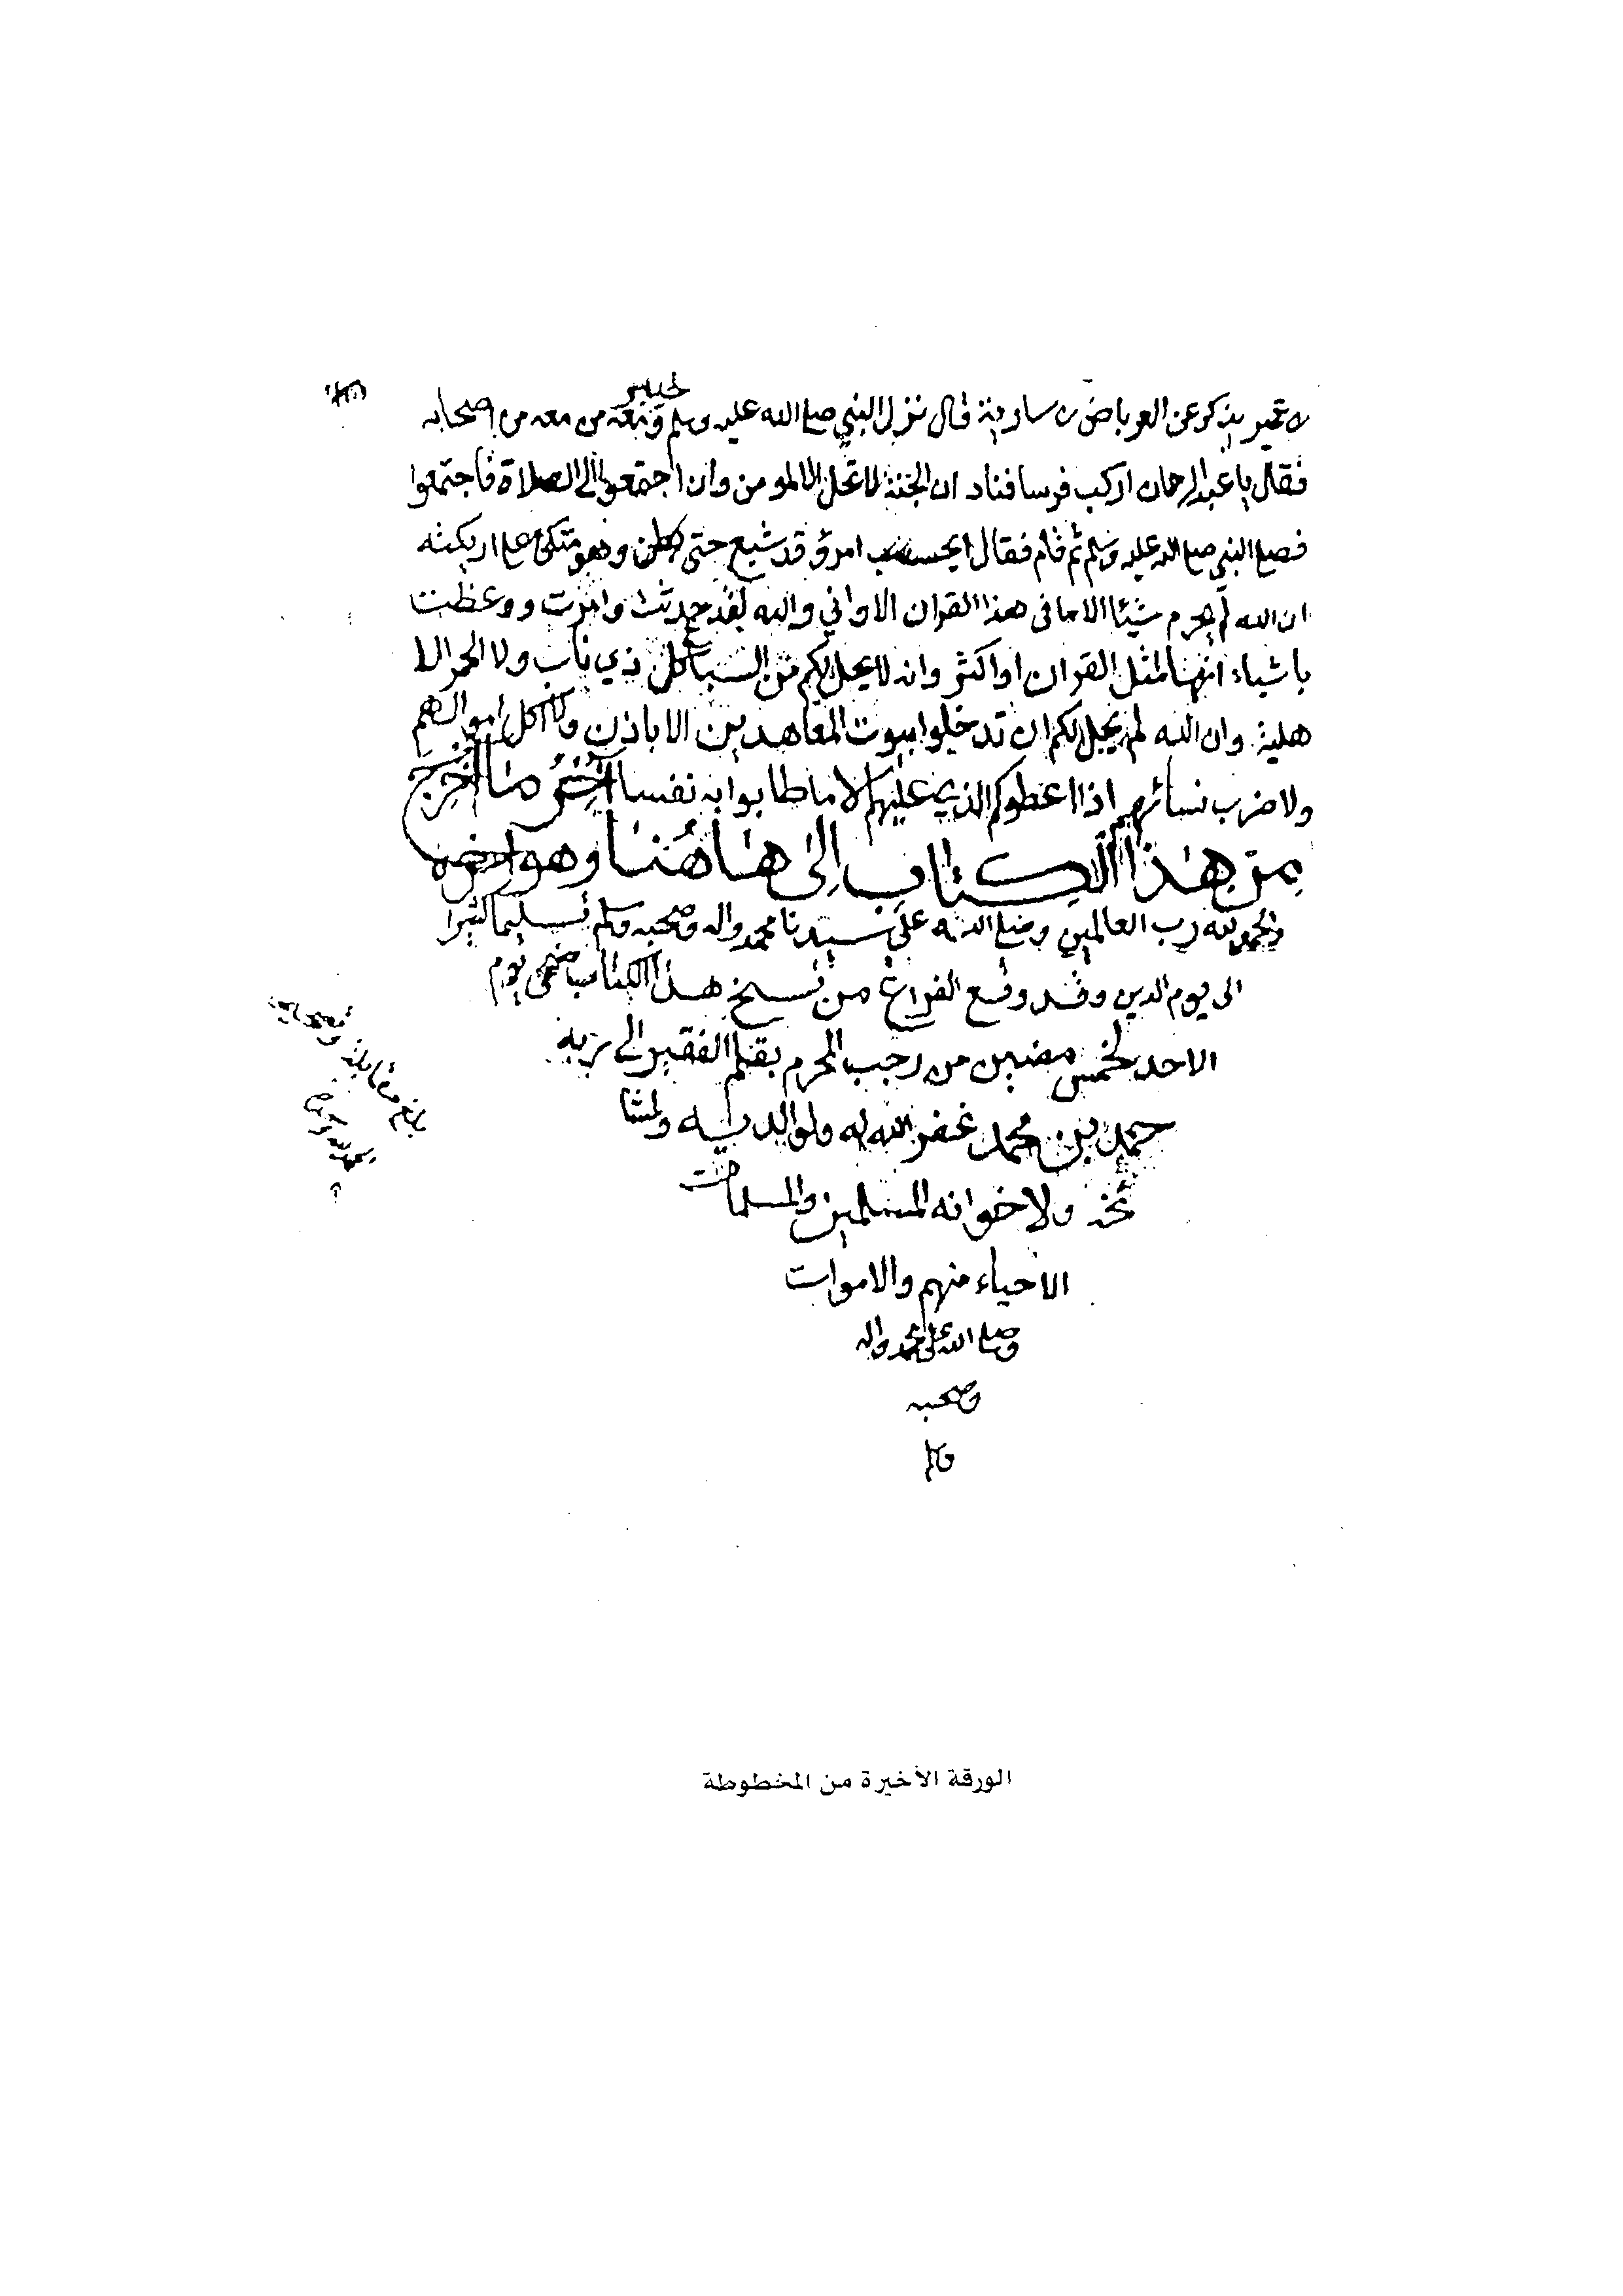 خيبر
يذكر عن العرباض بن سارية قال نزل النبي صلى الله عليه وسلم ومعه من معه من اصحابه
فقال يا عبد الرحمان اركب فرسا فناد ان الجنة لا تحل الا لمومن وان اجتمعوا الى الصلاة فاجتمعوا
فصلى النبي صلى الله عليه وسلم ثم قام فقال ايحسب امرؤ قد شبع حتى بطن وهو متكئ على اريكته
ان الله لم يحرم شيئا الا ما في هذا القران الا واني والله لقد حدثت وامرت ووعظت
باشياء انها لمثل القران او اكثر وانه لا يحل لكم من السباع كل ذي ناب ولا الحمر الا
هلية وان الله لم يحل لكم ان تدخلوا بيوت المعاهدين الا باذن ولا اكل اموالهم
ولا ضرب نسائهم اذا اعطوكم الذي عليهم الا ما طابوا به نفسا اخر ما اخرج
من هذا الكتاب الى هاهنا وهو اخره
والحمد لله رب العالمين وصلى الله على سيدنا محمد واله وصحبه وسلم تسليما كثيرا
الى يوم الدين وقد وقع الفراغ من نسخ هذا الكتاب ضحى يوم
الاحد لخمس مضين من رجب المحرم بقلم الفقير الى ربه
حمد بن محمد غفر الله له ولوالديه ولمشا
ئخه ولاخوانه المسلمين والمسلمات
الاحياء منهم والاموات
وصلى الله على محمد واله
وصحبه
وسلم
بلغ مقابلة
الورقة الأخيرة من المخطوطة